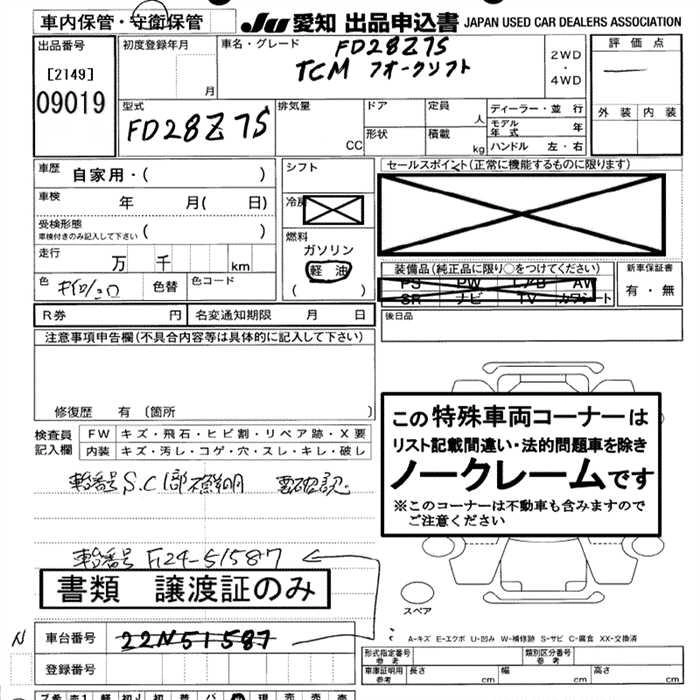 車内保管・守衛保管
JU 愛知 出品申込書 JAPAN USED CAR DEALERS ASSOCIATION
出品番号
[2149]
09019
初度登録年月
月
車名・グレード
FD28Z7S
TCM フォークリフト
2WD
・
4WD
評価点
外装 内装
型式
FD28Z7S
排気量
CC
ドア
形状
定員
人
積載
kg
ディーラー・並行
モデル年式 年
ハンドル 左・右
車歴
自家用・( )
車検
年 月( 日)
受検形態
車検付きのみ記入して下さい ( )
走行
万 千 km
色
色替
色コード
シフト
冷房
燃料
ガソリン
軽油
( )
セールスポイント(正常に機能するものに限ります)
装備品(純正品に限り○をつけてください)
PS PW エアB AW
SR ナビ TV カワシート
新車保証書
有・無
R券 円
名変通知期限 月 日
後日品
注意事項申告欄(不具合内容等は具体的に記入して下さい)
修復歴 有 〔箇所 〕
検査員
記入欄
FW キズ・飛石・ヒビ割・リペア跡・X要
内装 キズ・汚レ・コゲ・穴・スレ・キレ・破レ
車台番号 S.C 1部不鮮明 要確認
車台番号 F124-51587
書類 譲渡証のみ
この特殊車両コーナーは
リスト記載間違い・法的問題車を除き
ノークレームです
※このコーナーは不動車も含みますので
ご注意ください
スペア
N
車台番号
22N51587
登録番号
A-キズ E-エクボ U-凹み W-補修跡 S-サビ C-腐食 XX-交換済
形式指定番号
参考
類別区分番号
参考
車庫証明用
参考
長さ cm
幅 cm
高さ cm